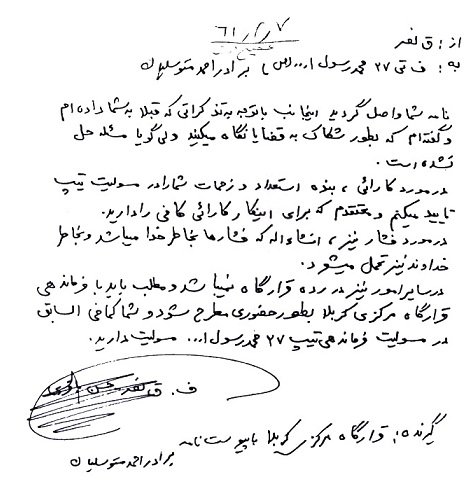 ۶۱/۲/۷
از : ق نصر
به : ف تی ۲۷ محمد رسول ا... (ص) برادر احمد متوسلیان
نامه شما واصل گردید اینجانب با توجه به تذکراتی که قبلا به شما داده‌ام
و گفته‌ام که بطور شکاک به قضایا نگاه میکنید ولی گویا مسئله حل
نشده است.
در مورد کارائی ، بنده استعداد و زحمات شما را در مسولیت تیپ
تایید میکنم و معتقدم که برای اینکار کارائی کافی را دارید.
در مورد فشار نیز ، انشاءاله که فشارها بخاطر خدا میباشد و بخاطر
خداوند نیز تحمل میشود.
در سایر امور نیز در رده قرارگاه نمیباشد و مطلب باید با فرماندهی
قرارگاه مرکزی کربلا بطور حضوری مطرح شود و شما کمافی السابق
در مسولیت فرماندهی تیپ ۲۷ محمد رسول ا... مسولیت دارید.
ف. ق نصر حسن
گیرنده : قرارگاه مرکزی کربلا با پیوست نامه
برادر احمد متوسلیان